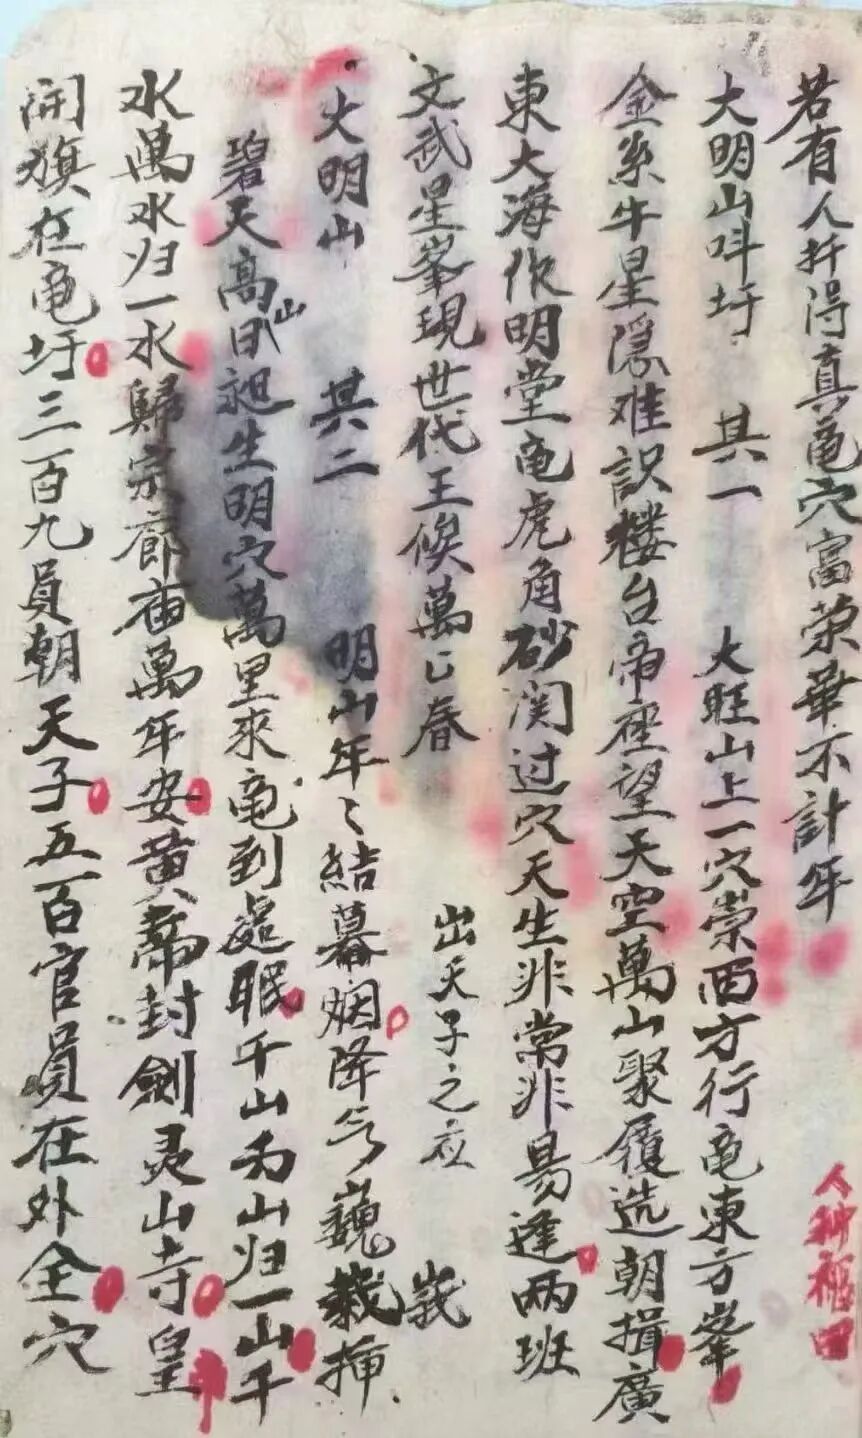 若有人扦得真竜穴富荣華不計年
人种福田
大明山呌圩 其一 大旺山上一穴崇西方行竜東方峯
金系牛星隐难訳楼台帝座望天空萬山聚履选朝揖廣
東大海作明堂竜虎角砂関过穴天生非常非易逢两班
文武星峯現世代王候萬亡春 出天子之应 峩
大明山 其二 明山年〻結幕烟降气巍栽挿
碧天高山昶生明穴萬里來竜到處眠千山万山归一山千
水萬水归一水歸宗廊庙萬年安黄帝封劍灵山寺皇
開旗在竜圩三百九員朝天子五百官員在外全穴